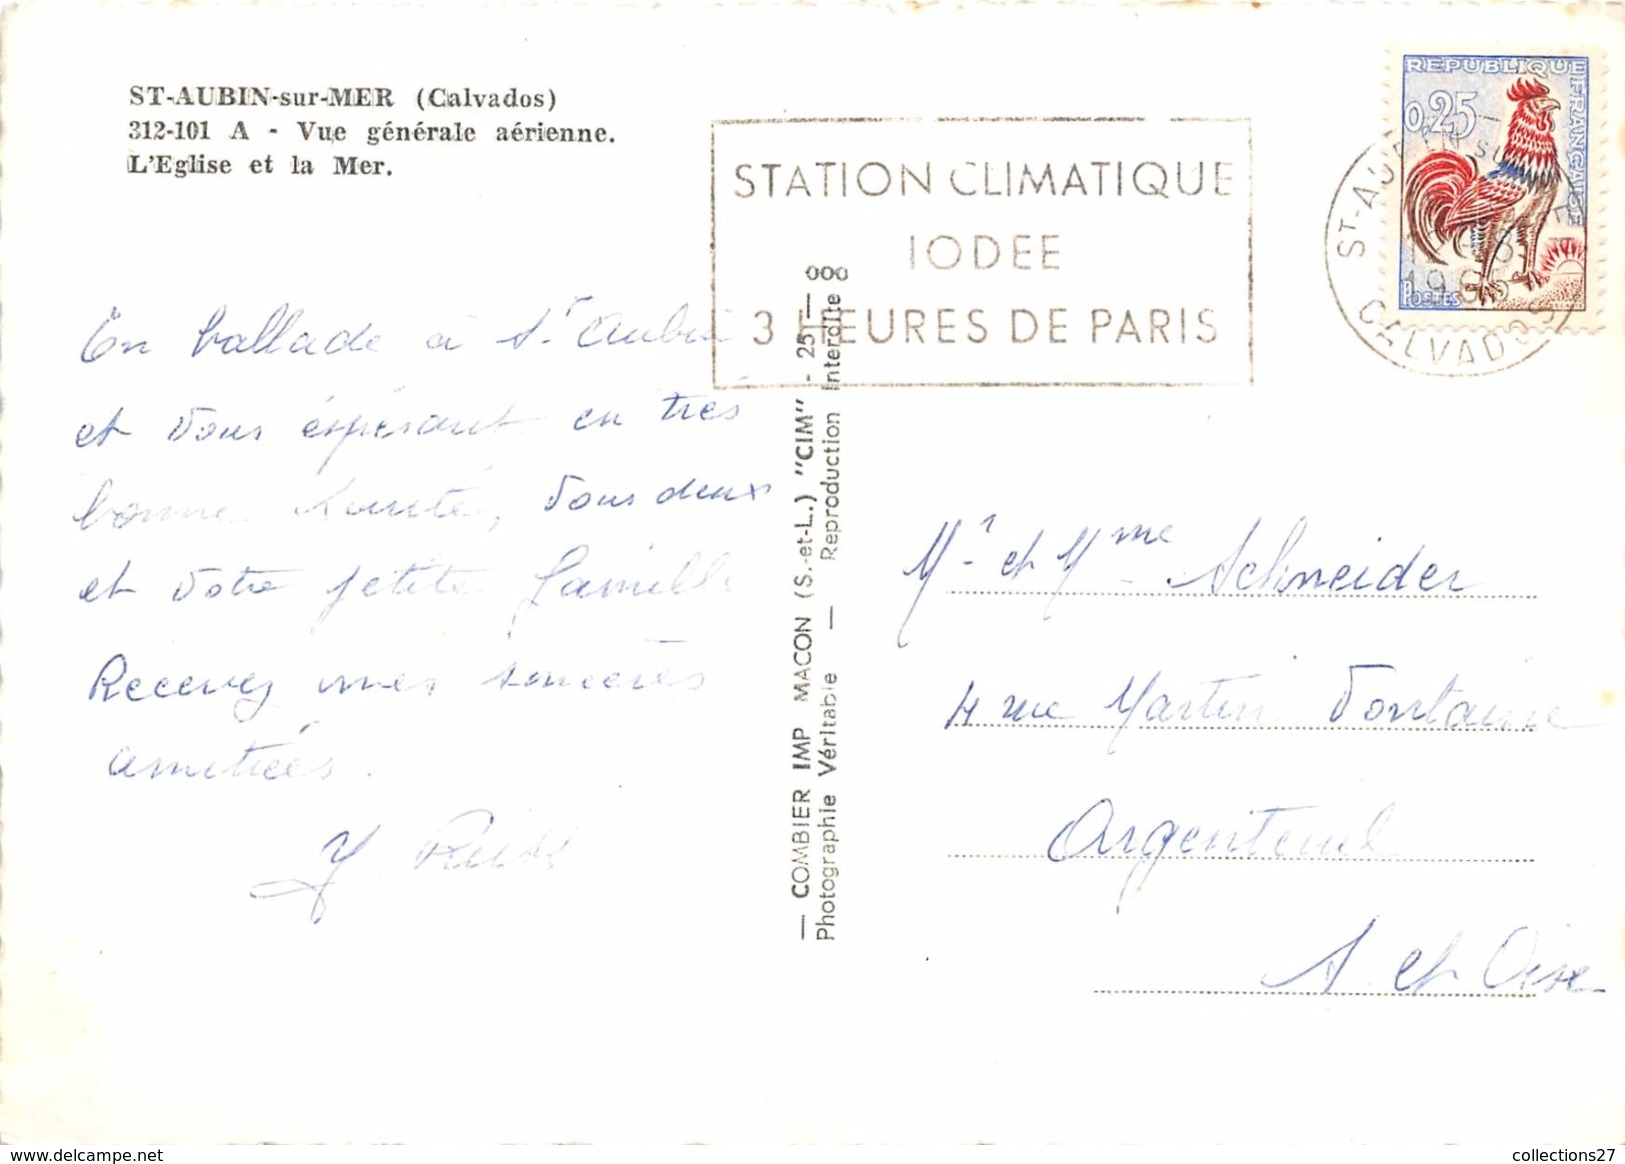 ST-AUBIN-sur-MER (Calvados)
312-101 A - Vue générale aérienne.
L'Eglise et la Mer.
STATION CLIMATIQUE
IODEE
3 HEURES DE PARIS
REPUBLIQUE FRANÇAISE
0,25
POSTES
ST-AUBIN SUR MER
CALVADOS
En ballade à St Aubin
et vous éspérant en très
bonne santé, vous deux
et votre petite famille
Recevez mes sincères
amitiés.
— COMBIER IMP MACON (S.-et-L.) "CIM" - 25 —
Photographie Véritable — Reproduction Interdite
Mr et Mme Schneider
4 rue Martin Fontaine
Argenteuil
S et Oise
delcampe.net
collections27